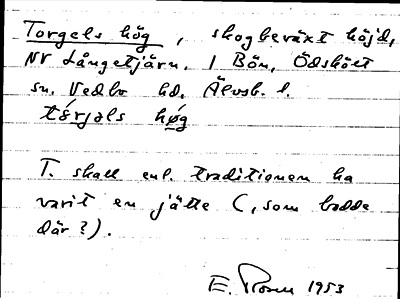 Torgels hög, skogbeväxt höjd,
NV Långetjärn. I Bön, Ödskölt
sn. Vedbo hd. Älvsb. l.
tórjals høg
T. skall enl. traditionen ha
varit en jätte (, som bodde
där?).
E. Rosen 1953